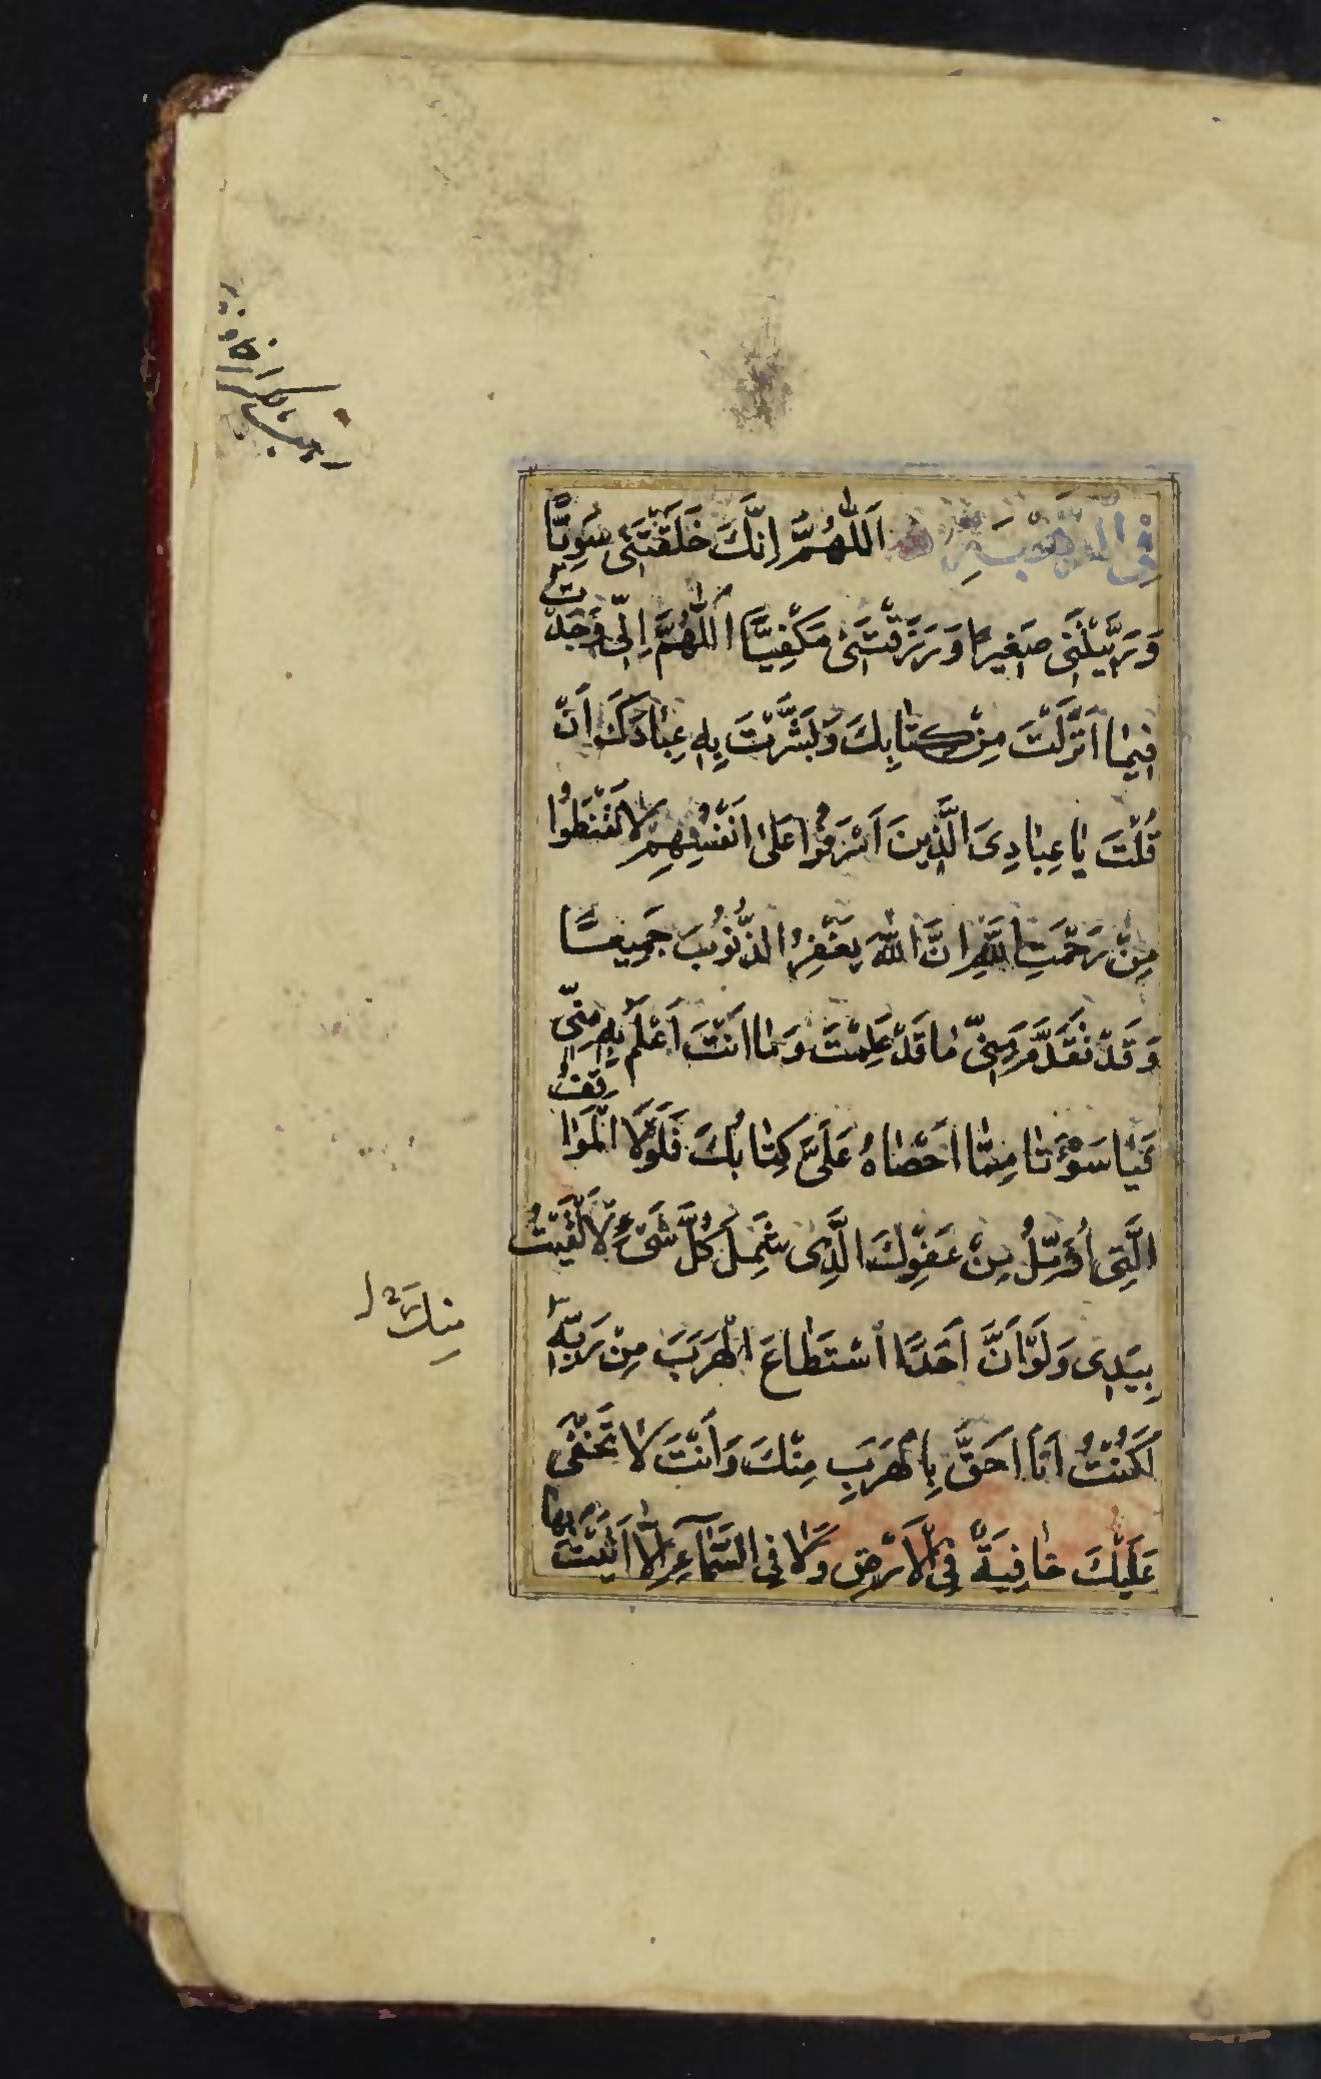 فِی الرَّهْبَةِ اَللّٰهُمَّ اِنَّكَ خَلَقْتَنٖی سَوِیًّا
وَ رَبَّیْتَنٖی صَغٖیرًا وَ رَزَقْتَنٖی مَكْفِیًّا اَللّٰهُمَّ اِنّٖی وَجَدْتُ
فٖیمٰا اَنْزَلْتَ مِنْ كِتٰابِكَ وَ بَشَّرْتَ بِهٖ عِبٰادَكَ اَنْ
قُلْتَ یٰا عِبٰادِیَ الَّذٖینَ اَسْرَفُوا عَلٰی اَنْفُسِهِمْ لٰا تَقْنَطُوا
مِنْ رَحْمَتِ اللّٰهِ اِنَّ اللّٰهَ یَغْفِرُ الذُّنُوبَ جَمٖیعًا
وَ قَدْ تَقَدَّمَ مِنّٖی مٰا قَدْ عَلِمْتَ وَ مٰا اَنْتَ اَعْلَمُ بِهٖ مِنّٖی
فَیٰا سَوْأَتٰا مِمّٰا اَحْصٰاهُ عَلَیَّ كِتٰابُكَ فَلَوْلَا الْمَوٰاقِفُ
الَّتٖی اُؤَمِّلُ مِنْ عَفْوِكَ الَّذٖی شَمِلَ كُلَّ شَیْءٍ لَاَلْقَیْتُ
بِیَدٖی وَ لَوْ اَنَّ اَحَدًا اسْتَطٰاعَ الْهَرَبَ مِنْ رَبِّهٖ
لَكُنْتُ اَنَا اَحَقَّ بِالْهَرَبِ مِنْكَ وَ اَنْتَ لٰا تَخْفٰی
عَلَیْكَ خٰافِیَةٌ فِی الْاَرْضِ وَ لٰا فِی السَّمٰآءِ اِلّٰا اَتَیْتَ بِهٰا
مِنكَ